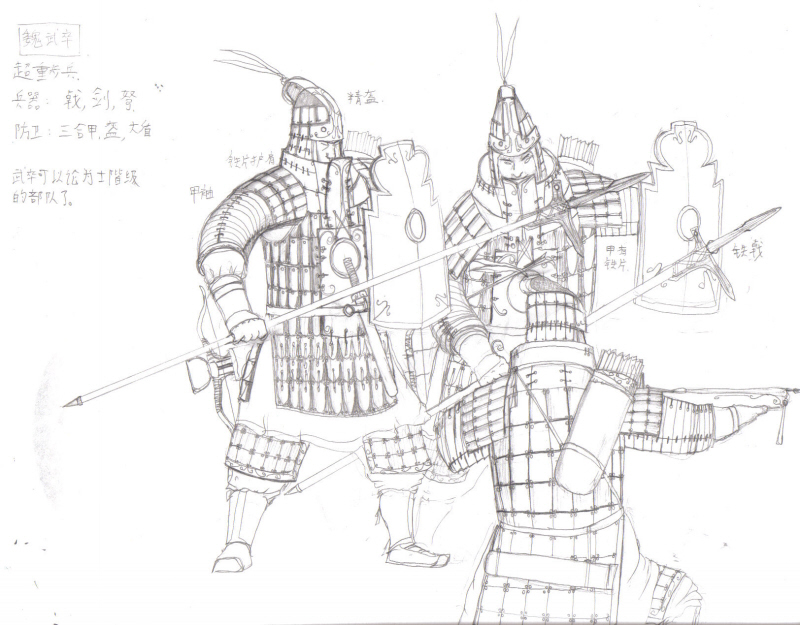 魏武卒
超重步兵
兵器：戟，剑，弩
防卫：三合甲，盔，大盾
武卒可以论为士阶级
的部队了。
精盔
铁片护肩
甲袖
甲有
铁片
铁戟